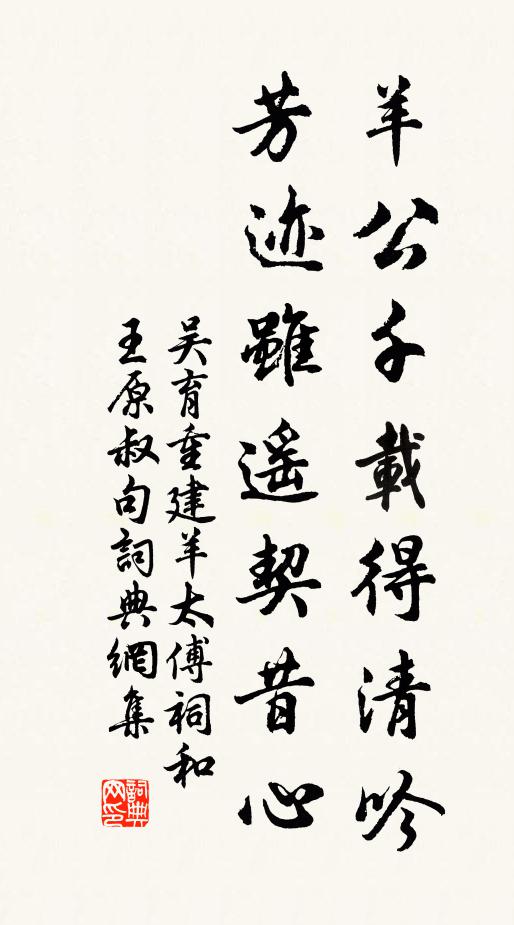 羊公千載得清吟
芳迹雖遥契昔心
吴育重建羊太傅祠和
王原叔句詞典網集
詞典网印